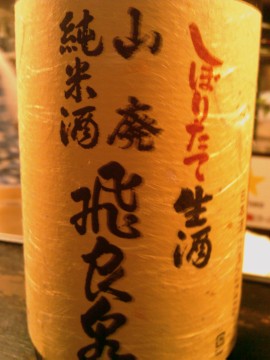 しぼりたて生酒
山廃
純米酒
飛良泉